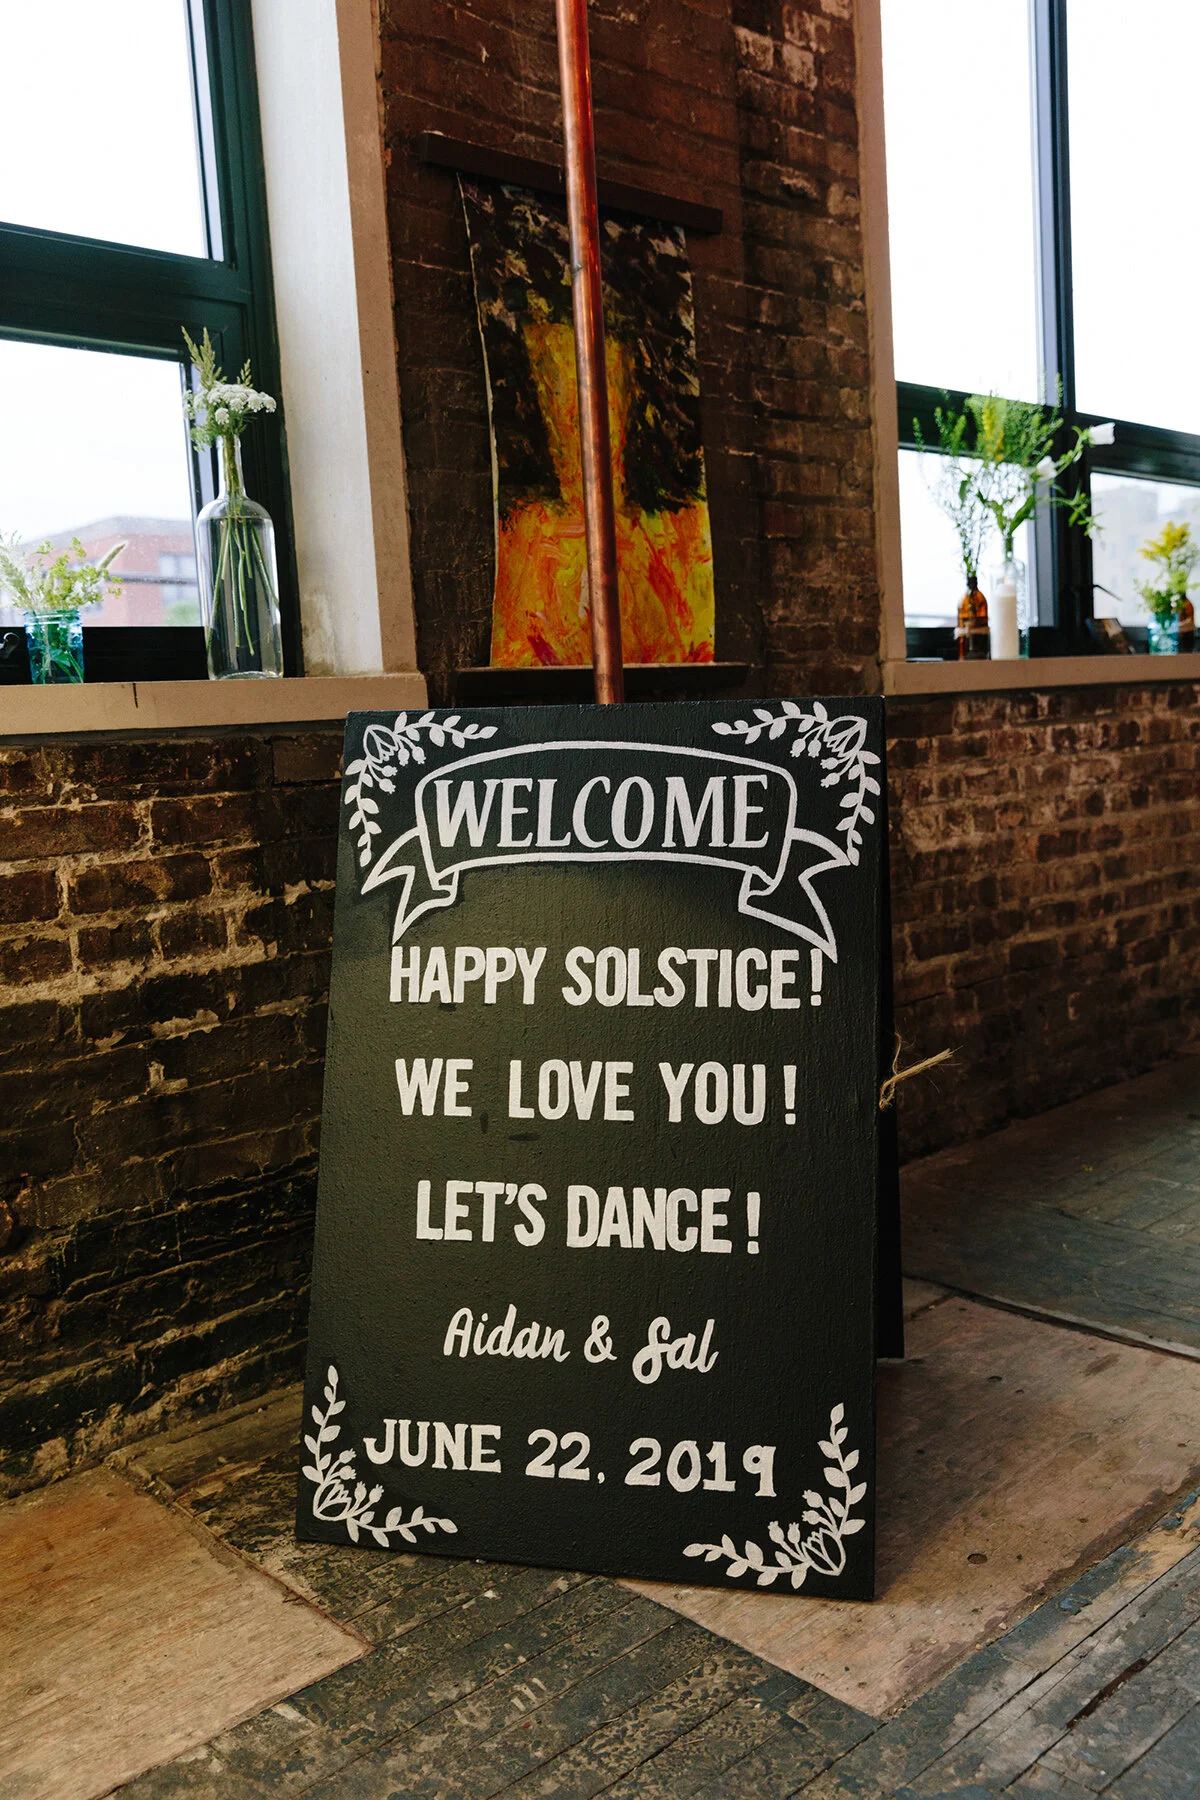 WELCOME
HAPPY SOLSTICE!
WE LOVE YOU!
LET'S DANCE!
Aidan & Sal
JUNE 22, 2019